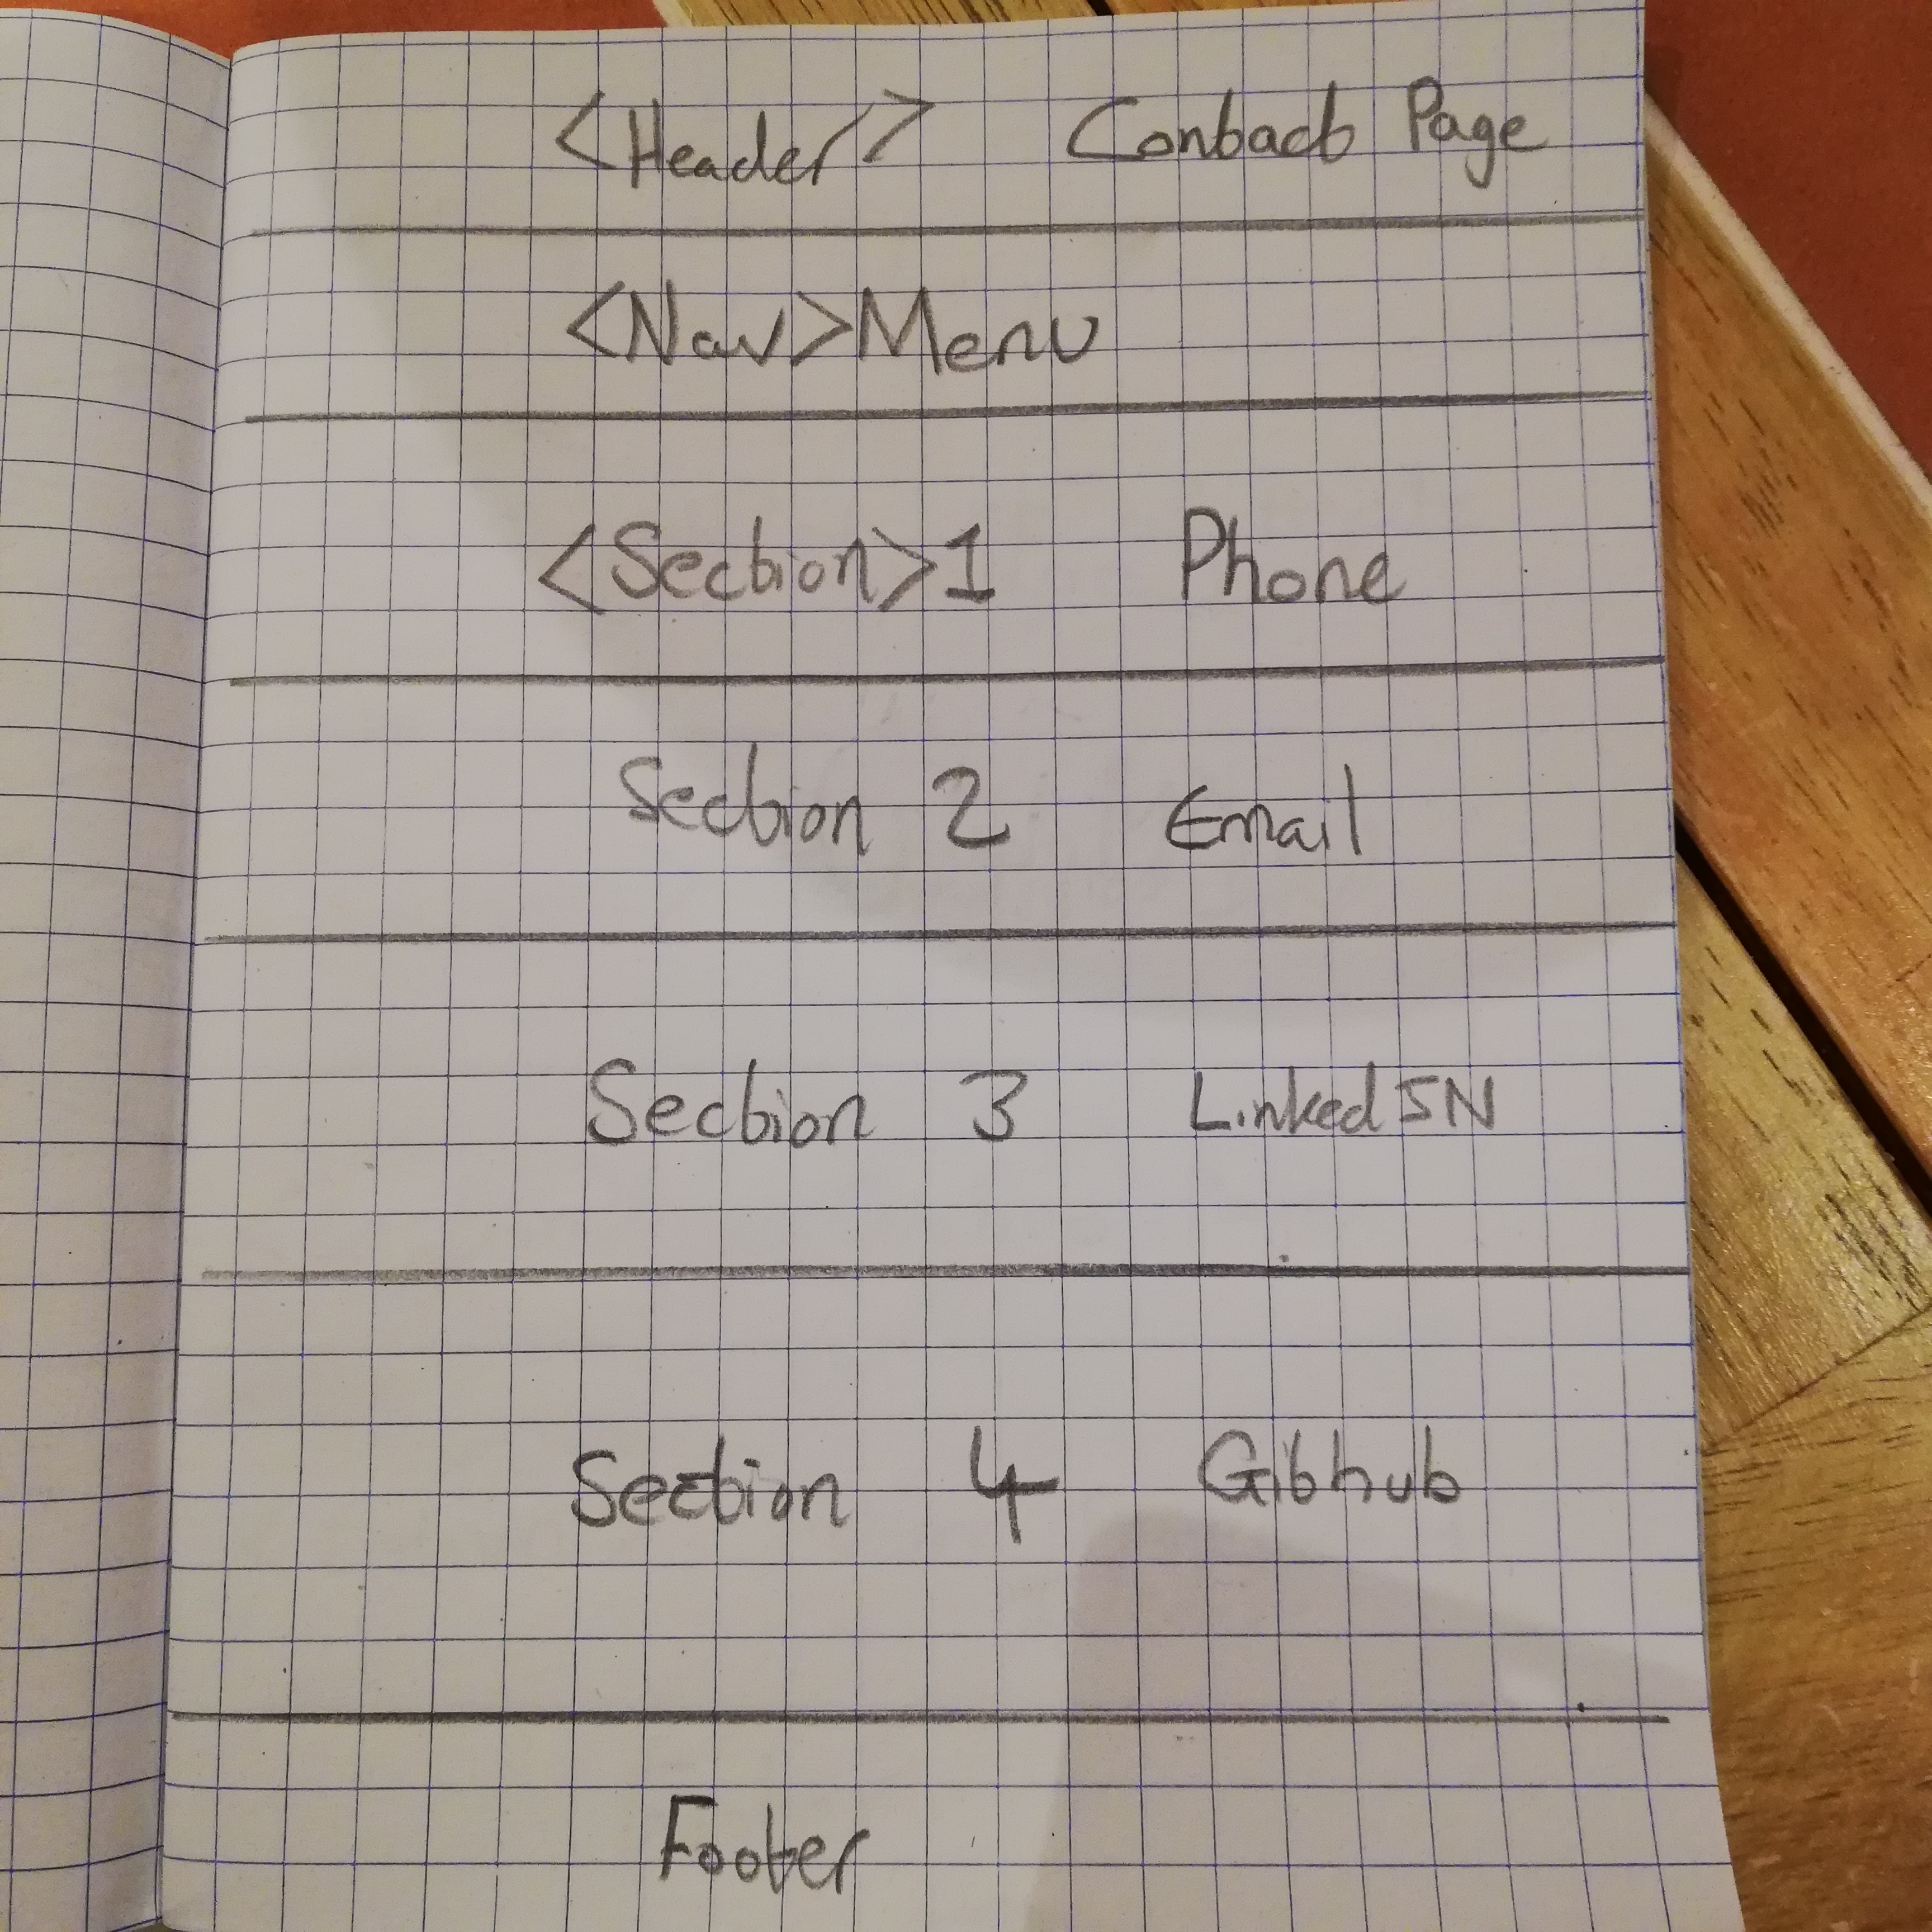 <Header/> Contact Page
<Nav>Menu
<Section>1 Phone
Section 2 Email
Section 3 LinkedIN
Section 4 Github
Footer